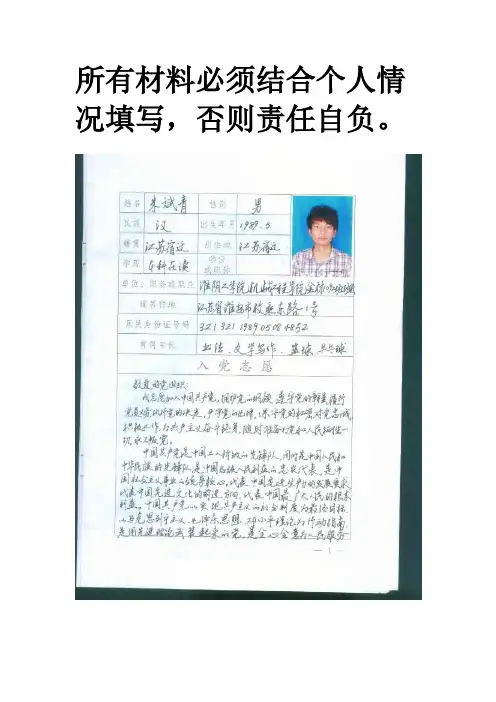 所有材料必须结合个人情
况填写，否则责任自负。
姓名 朱斌青 性别 男
民族 汉 出生年月 1989.5
籍贯 江苏宿迁 出生地 江苏宿迁
学历 本科在读 学位或职称
单位、职务或职业 淮阴工学院机械工程学院
现居住地 江苏省淮安市枚乘东路1号
居民身份证号码 321321198905084852
有何专长 书法、文学写作、篮球、乒乓球
入党志愿
敬爱的党组织:
我志愿加入中国共产党，拥护党的纲领，遵守党的章程，履行
党员义务，执行党的决定，严守党的纪律，保守党的秘密，对党忠诚，
积极工作，为共产主义奋斗终身，随时准备为党和人民牺牲一
切，永不叛党。
中国共产党是中国工人阶级的先锋队，同时是中国人民和
中华民族的先锋队，是中国各族人民利益的忠实代表，是中
国社会主义事业的领导核心，代表中国先进生产力的发展要求，
代表中国先进文化的前进方向，代表中国最广大人民的根本
利益。中国共产党以实现共产主义的社会制度为最终目标，
以马克思列宁主义、毛泽东思想、邓小平理论为行动指南，
是用先进理论武装起来的党，是全心全意为人民服务
— 1 —